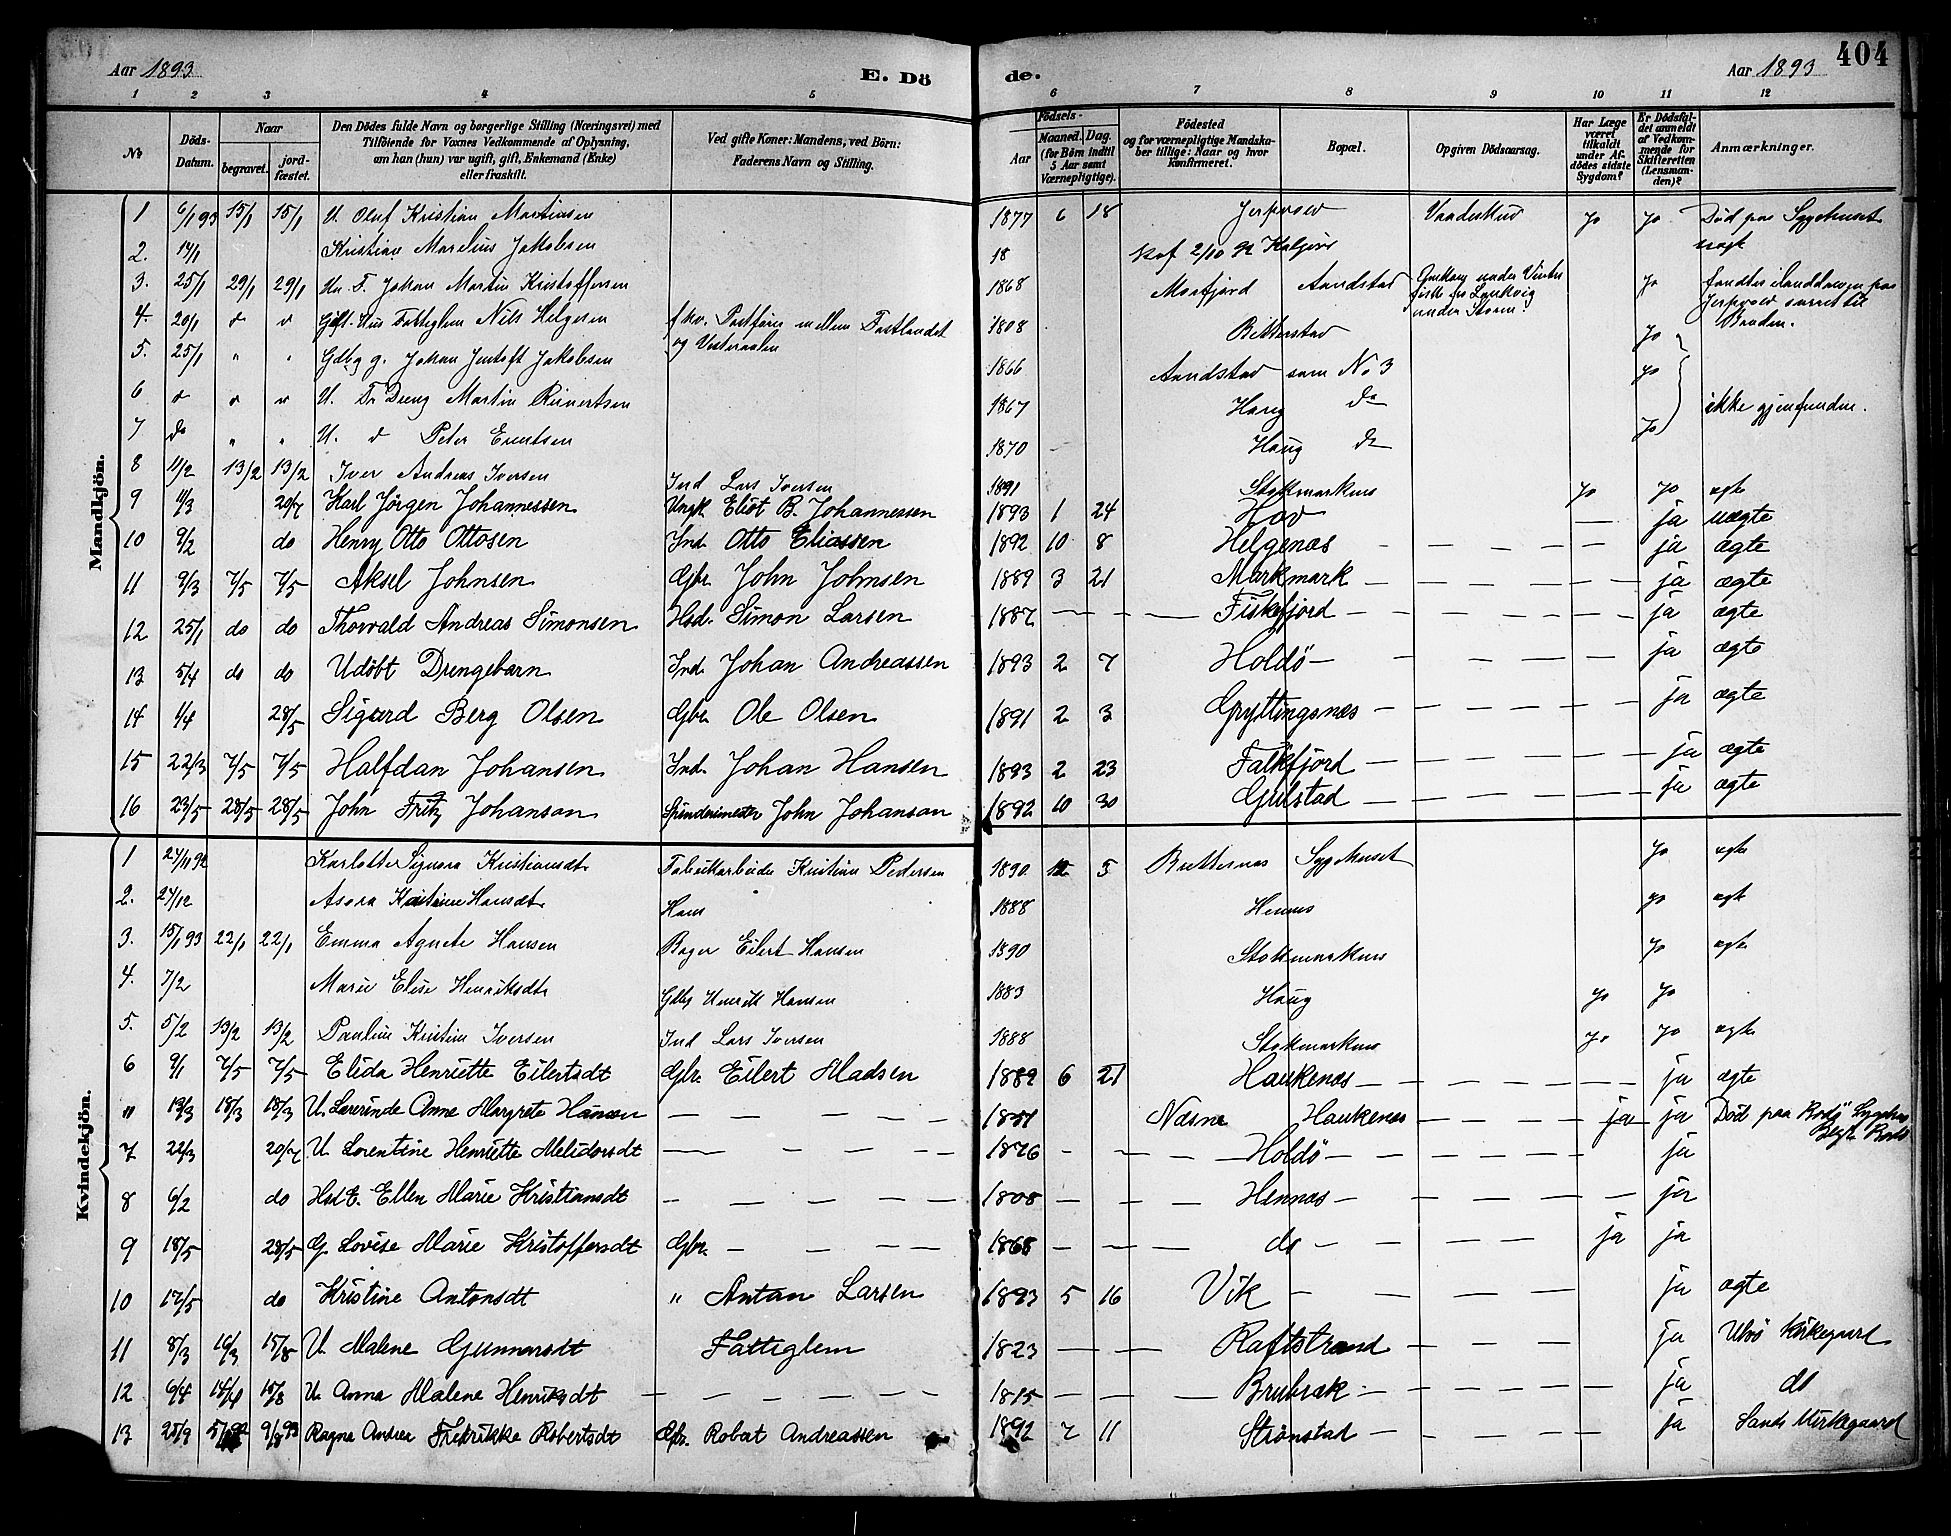 Aar 1893
E. Dö
de.
Aar 1893
404
1 2 3 4 5 6 7 8 9 10 11 12
No
Döds-Datum.
Naar
begravet.
jord-fæstet.
Den Dödes fulde Navn og borgerlige Stilling (Næringsvei) med
Tilföiende for Voxnes Vedkommende af Oplysning,
om han (hun) var ugift, gift, Enkemand (Enke)
eller fraskilt.
Ved gifte Koner: Mandens, ved Börn:
Faderens Navn og Stilling.
Födsels-
Aar
Maaned.
Dag.
(for Börn indtil
5 Aar samt
Værnepligtige).
Födested
og for værnepligtige Mandska-
ber tillige: Naar og hvor
konfirmeret.
Bopæl.
Opgiven Dödsaarsag.
Har Læge
været
tilkaldt
under Af-
dödes sidste
Sygdom?
Er Dödsfal-
det anmeldt
af Vedkom-
mende for
Skifteretten
(Lensman-
den)?
Anmærkninger.
Mandkjön.
1 6/1 93 15/1 15/1 U. Oluf Kristian Martinsen 1877 6 18 Vaadeskud Jo Jo Død paa Sygehuset
2. 14/1 Kristian Marelius Jakobsen 18
3. 25/1 29/1 29/1 Johan Martin Kristoffersen 1868 Aandstad Jo
4. 20/1 Nils Helgesen Postfører mellem Fastlandet 1808 Bitterstad Jo
og Vesteraalen
5. 25/1 " " Johan Jentoft Jakobsen 1866 Aandstad som No 3 Jo
6 U. Martin Reinertsen 1867 Haug do ikke gjenfunden.
7 do " " U. Peter Evertsen 1870 Haug do Jo
8 11/2 13/2 13/2 Iver Andreas Iversen Ind Lars Iversen 1891 Stokmarknes Jo Jo ægte
9 4/3 20/7 Karl Jørgen Johannessen Ungk. Eliot B. Johannessen 1893 1 24 Hov — ja uægte
10 9/2 do Henry Otto Ottosen Ind. Otto Eliassen 1892 10 8 Helgenæs ja ægte
11 9/3 7/5 7/5 Aksel Johnsen Gbr. John Johnsen 1889 3 21 Markmark ja ægte
12 25/1 do do Thorvald Andreas Simonsen Hsd. Simon Larsen 1887 Fiskefjord ja ægte
13 5/4 do do Udöbt Drengebarn Ind. Johan Andreassen 1893 2 7 Holdö ja ægte
14 1/4 28/5 Sigurd Berg Olsen Gbr. Ole Olsen 1891 2 3 Gryttingsnæs ja ægte
15 22/3 7/5 7/5 Halfdan Johansen Ind. Johan Hansen 1893 2 23 Falkfjord ja ægte
16 23/5 28/5 28/5 John Fritz Johanson Spinderimester John Johanson 1892 10 30 Gulstad ja ægte
Kvindekjön.
1 27/11 92 Karlotte Signora Kristiansdt. Fabrikarbeider Kristian Pedersen 1890 12 5 Sygehuset Jo ægte
2. 27/12 Kristine Hansdt. Hans 1888 Hennes Jo ægte
3. 15/1 93 22/1 22/1 Emma Agnete Hansen Bager Eilert Hansen 1890 Stokmarknes Jo ægte
4. 7/2 Marie Elise Henriksdt. Gdbr Henrik Hansen 1883 Haug Jo Jo
5. 5/2 13/2 13/2 Pauline Kristine Iversen Ind Lars Iversen 1888 Stokmarknes Jo Jo ægte
6 9/1 7/5 7/5 Elida Henriette Eilertsdt Gbr. Eilert Madsen 1889 6 21 Haukenæs ja ægte
" 13/3 18/3 18/3 U. Lærerinde Anne Margrete Hansen Næsne Haukenæs ja ja Död paa Bodö Sygehus
Begr. Bodö
7 22/3 20/7 U. Lorentine Henriette Melidorsdt 1876 Holdö ja
8 6/2 do Ellen Marie Kristiansdt 1808 Hennæs ja
9 18/5 28/5 G. Lovise Marie Kristoffersdt Gbr. 1868 do ja ja
10 17/5 do Kristine Antonsdt " Anton Larsen 1893 5 16 Vik ja ægte
11 8/3 16/3 15/8 U. Malene Gunnarsdt Fattiglem 1823 Raftstrand ja Ulvö Kirkegaard
12 6/4 15/8 U. Anna Malene Henriksdt 1815 ja do
13 25/9 9/8 93 Ragna Andrea Fredrikke Robertsdt Gbr. Robert Andreassen 1892 7 11 Strønstad ja Sands Kirkegaard